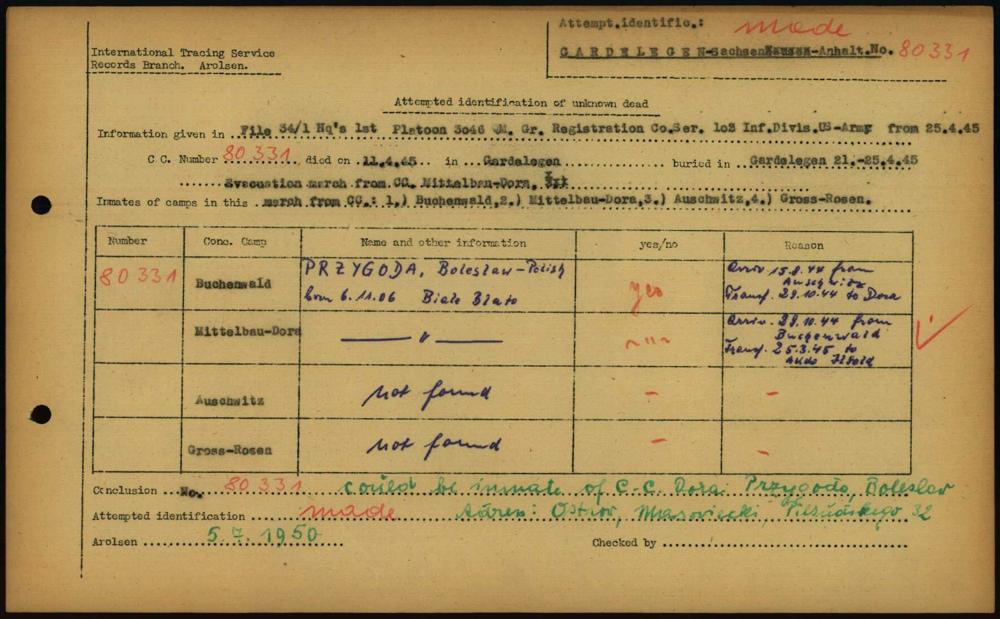 Attempt.identific.: made
GARDELEGEN-Sachsen-Anhalt.No. 80331
International Tracing Service
Records Branch. Arolsen.
Attempted identification of unknown dead
Information given in File 34/1 Hq's 1st Platoon 3046 QM. Gr. Registration Co.Ser. 102 Inf.Divis.US-Army from 25.4.45
C.C. Number 80 331 died on 11.4.45 in Gardelegen buried in Gardelegen 21.-25.4.45
Evacuation march from CC. Mittelbau-Dora,
Inmates of camps in this march from CC.: 1.) Buchenwald,2.) Mittelbau-Dora,3.) Auschwitz,4.) Gross-Rosen.
Number Conc. Camp Name and other information yes/no Reason
80331 Buchenwald PRZYGODA, Boleslaw-Polish yes Arriv 15.8.44 from Auschwitz
born 6.11.06 Biale Blato Transf. 29.10.44 to Dora
Mittelbau-Dora — " — -"- Arriv. 29.10.44 from Buchenwald
Transf. 25.3.45 to
Auschwitz not found - -
Gross-Rosen not found - -
Conclusion No. 80 331 could be inmate of C-C Dora: Przygoda, Boleslav
Attempted identification made Adress: Ostrov, Masoviecki, 32
Arolsen 5.7.1950 Checked by